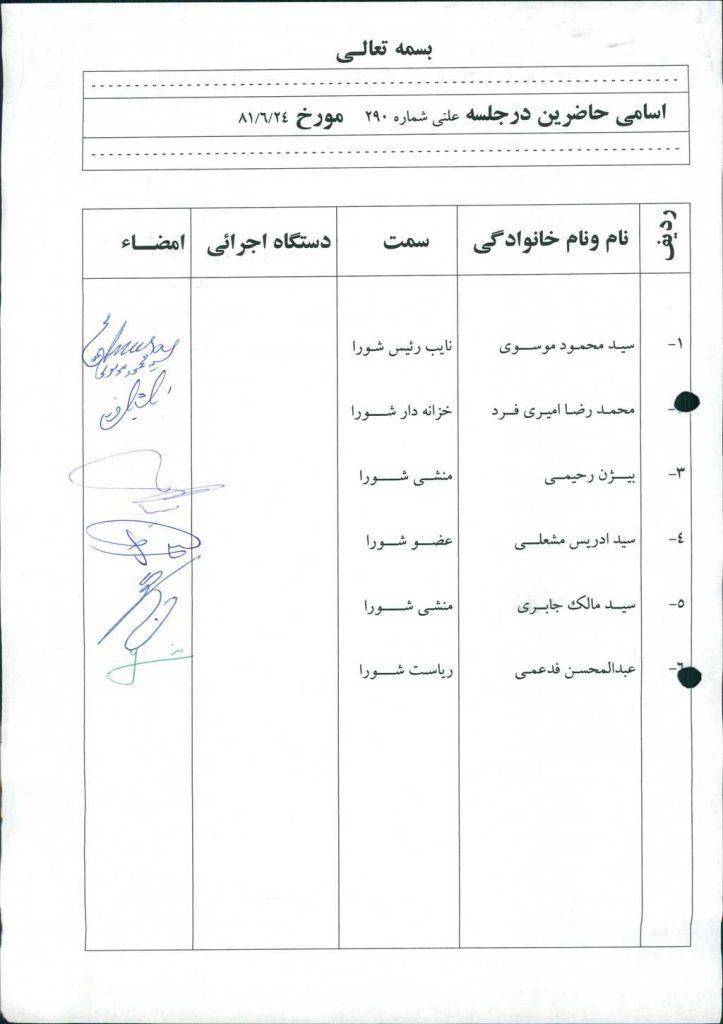 بسمه تعالی
اسامی حاضرین درجلسه علنی شماره ۲۹۰ مورخ ۸۱/٦/۲٤
ردیف نام ونام خانوادگی سمت دستگاه اجرائی امضاء
۱- سید محمود موسوی نایب رئیس شورا
محمد رضا امیری فرد خزانه دار شورا
۳- بیژن رحیمی منشی شورا
٤- سید ادریس مشعلی عضو شورا
۵- سید مالک جابری منشی شورا
٦- عبدالمحسن فدعمی ریاست شورا